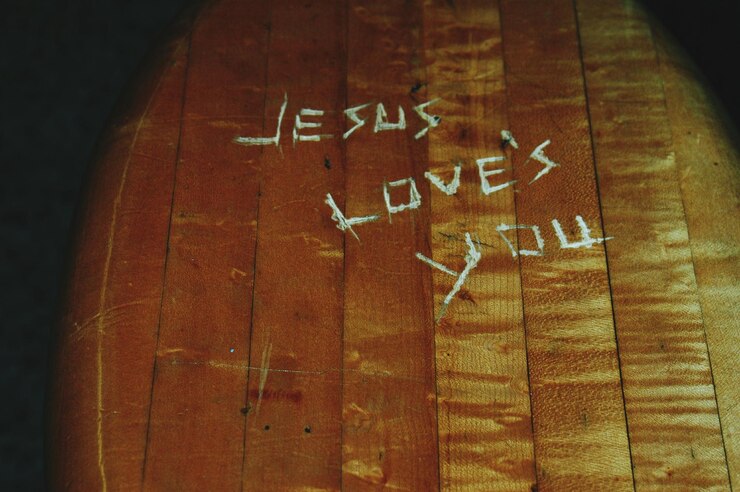 JESUS
LOVE'S
YOU